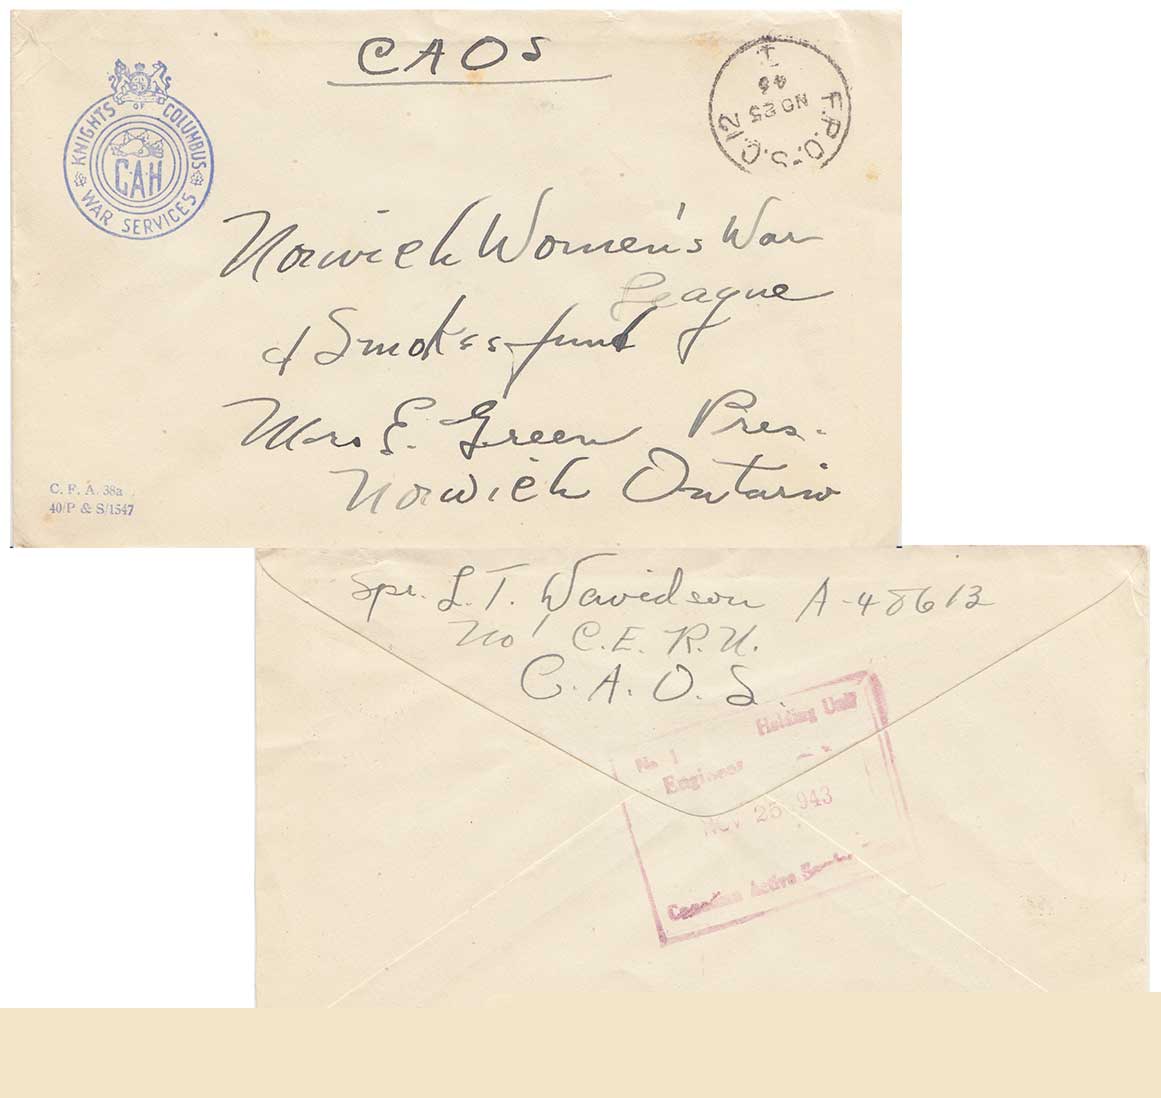 CAOS
KNIGHTS OF COLUMBUS
CAH
WAR SERVICES
F.P.O. S.C. 12
NO 25
Norwich Women's War
League
& Smokes fund
Mrs E. Green Pres.
Norwich Ontario
C. F. A. 38a
40/P & S/1547
Spr. L. T. Davidson A-48613
No 1 C. E. R. U.
C. A. O. S.
No 1
Holding Unit
Engineer
NOV 25 943
Canadian Active